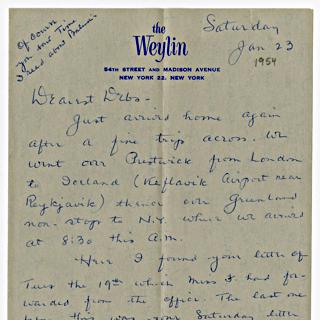 Of course
you saw Time
& read about Brahms.
the
Weylin
54TH STREET AND MADISON AVENUE
NEW YORK 22, NEW YORK
Saturday
Jan 23
1954
Dearest Debs -
Just arrived home again
after a fine trip across. We
went over Prestwick from London
to Iceland (Keflavik Airport near
Reykjavik) thence over Greenland
non-stop to N.Y. where we arrived
at 8:30 this A.M.
-Here I found your letter of
Tues the 19th which Miss J. had for-
warded from the office. The last one
this was your Saturday letter